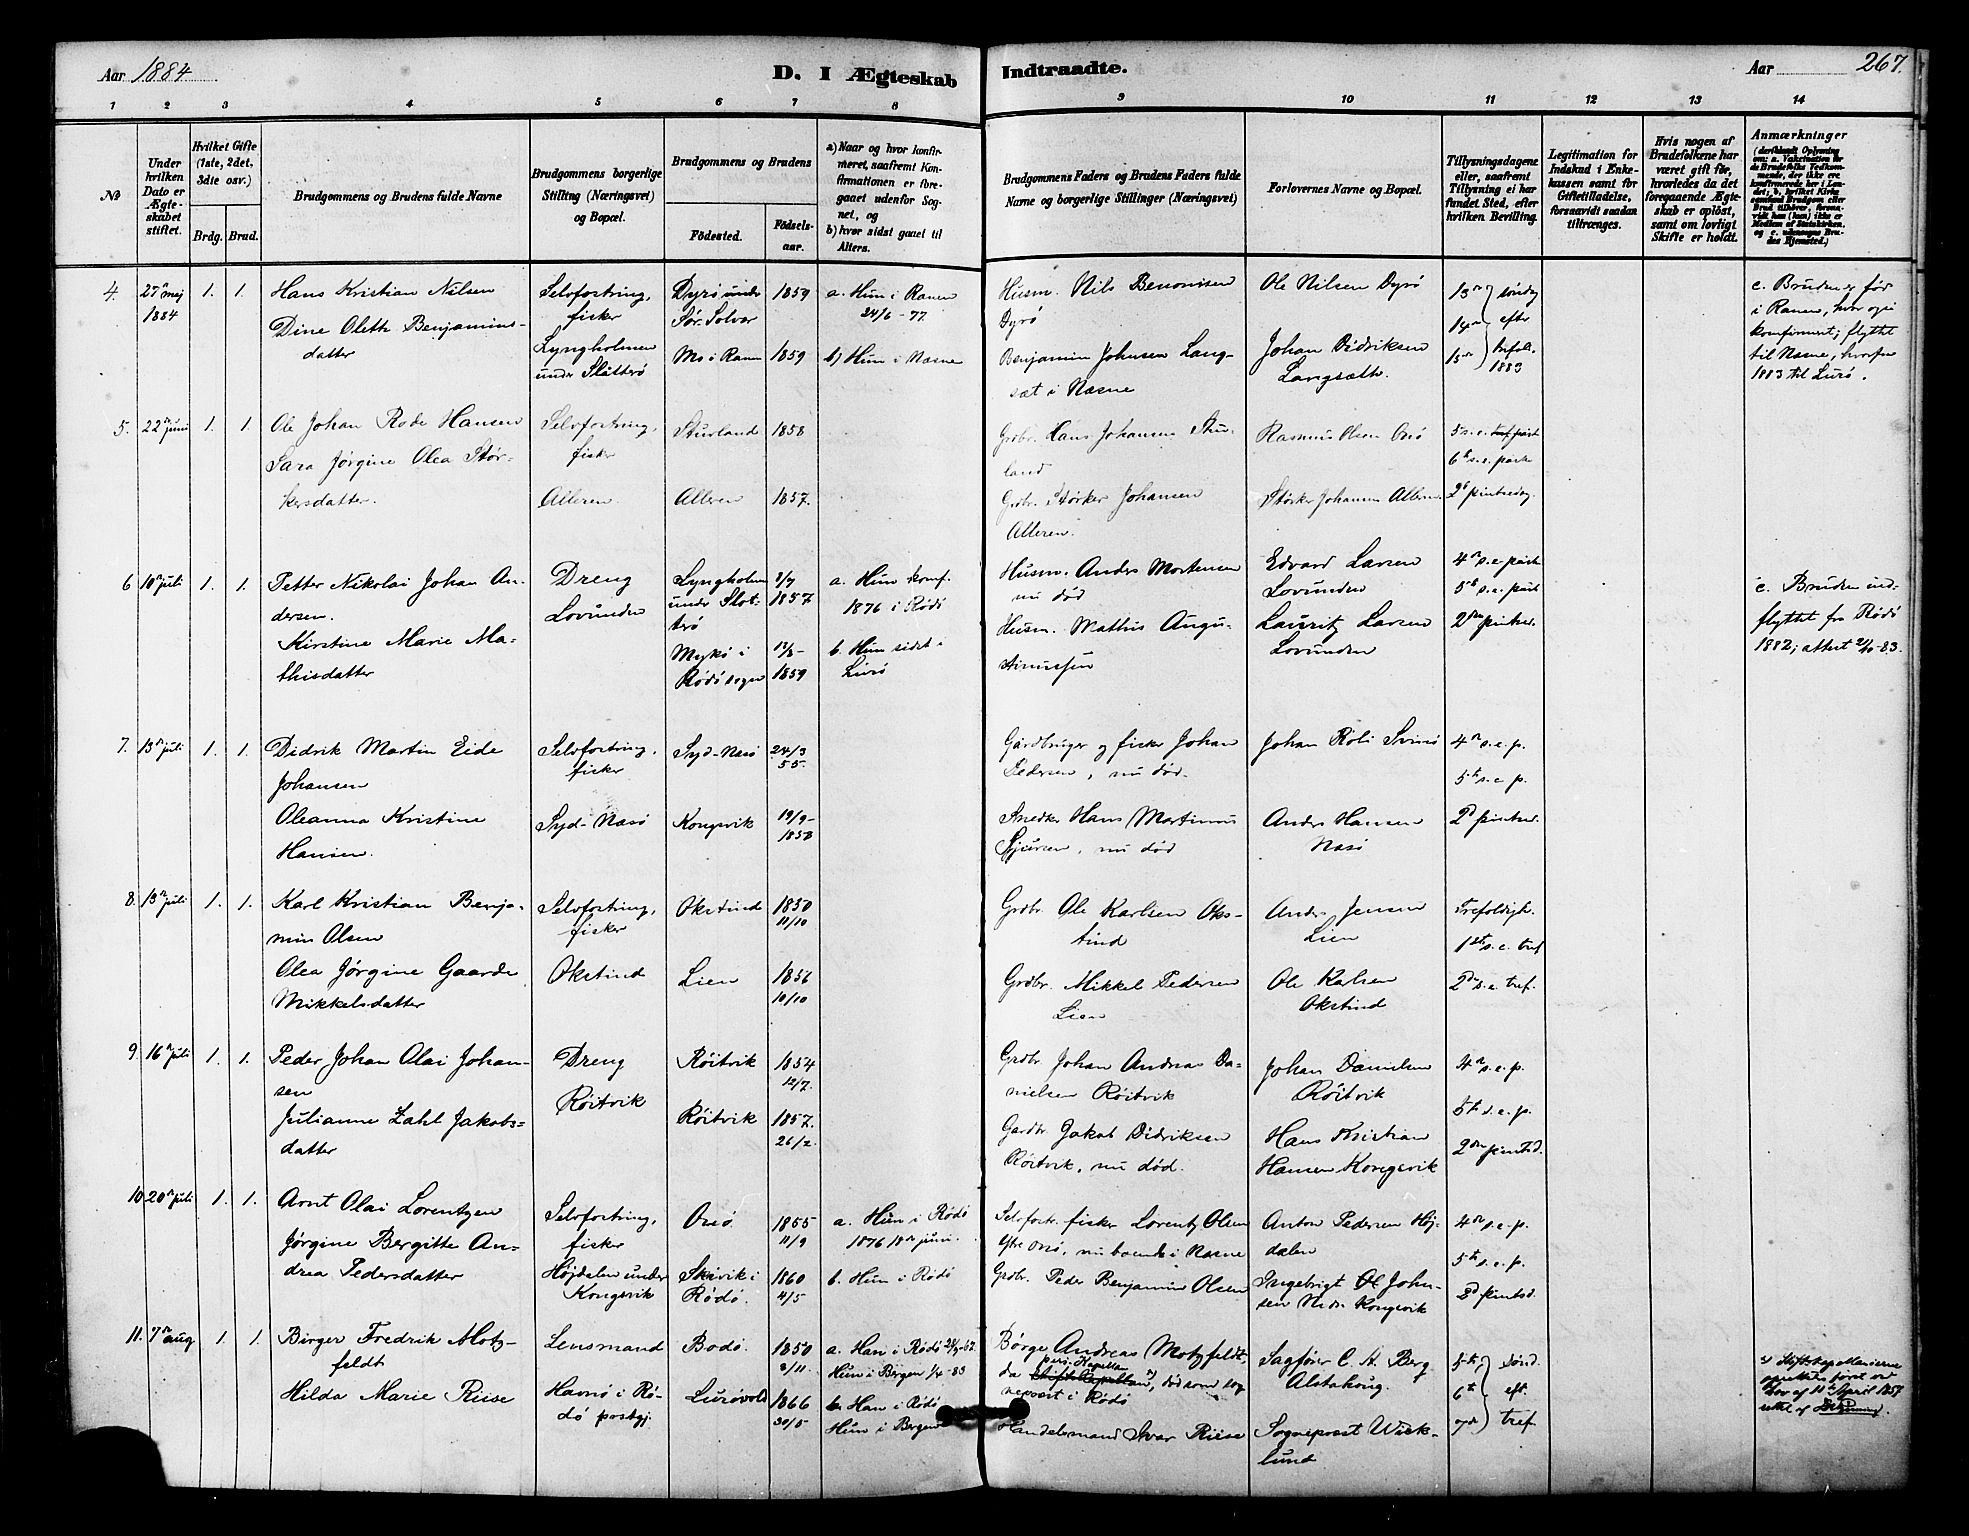 Aar 1884
D. I Ægteskab Indtraadte.
Aar 267.
1 2 3 4 5 6 7 8 9 10 11 12 13 14
No
Under hvilken Dato er Ægteskabet stiftet.
Hvilket Gifte (1ste, 2det, 3die osv.)
Brdg. Brud.
Brudgommens og Brudens fulde Navne
Brudgommens borgerlige Stilling (Næringsvei) og Bopæl.
Brudgommens og Brudens
Fødested. Fødselsaar.
a) Naar og hvor konfirmeret, saafremt Konfirmationen er foregaaet udenfor Sognet, og
b) hvor sidst gaaet til Alters.
Brudgommens Faders og Brudens Faders fulde Navne og borgerlige Stillinger (Næringsvei)
Forlovernes Navne og Bopæl.
Tillysningsdagene eller, saafremt Tillysning ei har fundet Sted, efter hvilken Bevilling.
Legitimation for Indskud i Enkekassen samt for Giftetilladelse, forsaavidt saadan tiltrænges.
Hvis nogen af Brudefolkene har været gift før, hvorledes da det foregaaende Ægteskab er opløst, samt om lovligt Skifte er holdt.
Anmærkninger
4. 27 mej 1884 1. 1.
Hans Kristian Nilsen
Dine Oleth Benjaminsdatter
Selvforstring, fisker
Lyngholmen under Slatterø
Dyrø under Sør-Solvær 1859
Mo i Ranen 1859
a. Hun i Ranen 24/6-77.
b) Hun i Næsne
Husm. Nils Benonisen Dyrø
Benjamin Johnsen Langsæt i Næsne
Ole Nilsen Dyrø
Johan Didriksen Langsæth.
13de 14de 15de søndag efter trefol. 1883
c. Bruden er før i Ranen, hvor ogsi konfirmert; flyttet til Næsne, hvorfra 1883 til Lurø.
5. 22 juni 1. 1.
Ole Johan Rode Hansen
Sara Jørgine Olea Størkersdatter.
Selvforstring, fisker
Alleren
Sturland 1858
Alleren 1857.
Grdbr. Hans Johansen Sturland
Grdbr. Størker Johansen Alleren.
Rasmus Olsen Onø
Størker Johansen Alleren
5 s. e. påsk
6te s. e. påske
2d pintsedag.
6 10 juli 1. 1.
Petter Nikolai Johan Andersen.
Kirstine Marie Mathisdatter
Dreng
Lovunden
Lyngholmen under Slotterø 1857
Mykø i Rødø sogn 12/8-1859
a. Hun konf. 1876 i Rødø
b. Hun sidst i Lurø
Husm. Anders Mortensen nu død
Husm. Mathis Augustinussen
Edvard Larsen Lovunden
Lauritz Larsen Lovunden
4de s. e. påsk
5te s. e. påsk
2den pintsed.
c. Bruden indflyttet fra Rødø 1882; attest 2/10-83.
7. 13 juli 1. 1.
Didrik Martin Eide Johansen
Oleanna Kristine Hansen.
Selvforstring, fisker
Syd-Næsø
Syd-Næsø 24/3 55.
Kongsvik 19/9-1858
Gårdbruger og fisker Johan Pedersen, nu død.
Snedker Hans Martinus Sjursen, nu død
Johan Røli Svinø
Anders Hansen Næsø
4de s. e. p.
5te s. e. p.
2d pintsed.
8. 13 juli 1. 1.
Karl Kristian Benjamin Olsen
Olea Jørgine Gaarde Mikkelsdatter
Selvforstring, fisker
Okstind
Okstind 1850 11/10
Lien 1856 10/10
Grdbr. Ole Karlsen Okstind
Grdbr. Mikkel Pedersen Lien
Anders Jensen Lien
Ole Karlsen Okstind
Trefoldigh.
1ste s. e. tref
2den s. e. tref.
9. 16 juli 1. 1.
Peder Johan Olai Johansen
Julianne Zahl Jakobsdatter
Dreng
Røitvik
Røitvik 1854 12/7.
Røitvik 1857. 26/2.
Grdbr. Johan Andreas Danielsen Røitvik
Gardbr. Jakob Didriksen Røitvik, nu død.
Johan Danielsen Røitvik
Hans Kristian Hansen Kongsvik
4de s. e. p.
5te s. e. p.
2den pintsd.
10. 20 juli 1. 1.
Arnt Olai Lorentzen
Jørgine Bergitte Andrea Pedersdatter
Selvforstring, fisker
Højdalen under Kongsvik
Onø 1855 11/9
Skivik i Rødø. 1860 4/5
a. Hun i Rødø 1876 18de juni.
b. Hun i Rødø
Selvforstr. fisker Lorentz Olsen Ytre Onø, nu boende i Næsne
Grdbr. Peder Benjamin Olsen
Anton Pedersen Højdalen
Ingebrigt Ol Johnsen Nedre Kongsvik
4de s. e. p.
5te s. e. p.
2d pintsd.
11. 7 aug 1. 1.
Birger Fredrik Motzfeldt
Hilda Marie Riise
Lensmand
Havnø i Rødø postgj.
Bodø. 1850 8/11.
Lurøvold 1866 30/5
a. Han i Rødø 24/9-67.
Hun i Bergen 1/4-83
b. Han i Rødø
Hun i Bergen
Børge Andreas Motzfeldt, da pers. Kapellan, død som sogneprest i Rødø
Handelsmand Ivar Riise
Sagfører C. A. Berg Alstahoug.
Sogneprest Wicklund
5te 6te 7de sønd. eft. tref.